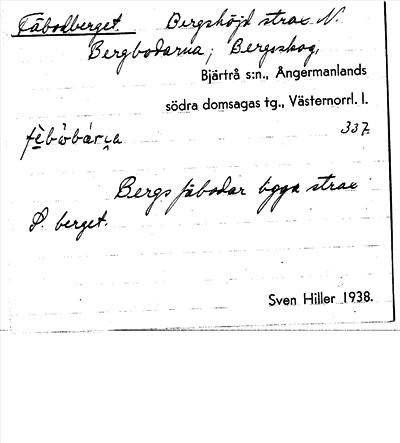 Fäbodberget. Bergshöjd strax N.
Bergbodarna; Bergsskog.
Bjärtrå s:n., Ångermanlands
södra domsagas tg., Västernorrl. l.
337.
Bergs fäbodar ligga strax
S. berget.
Sven Hiller 1938.